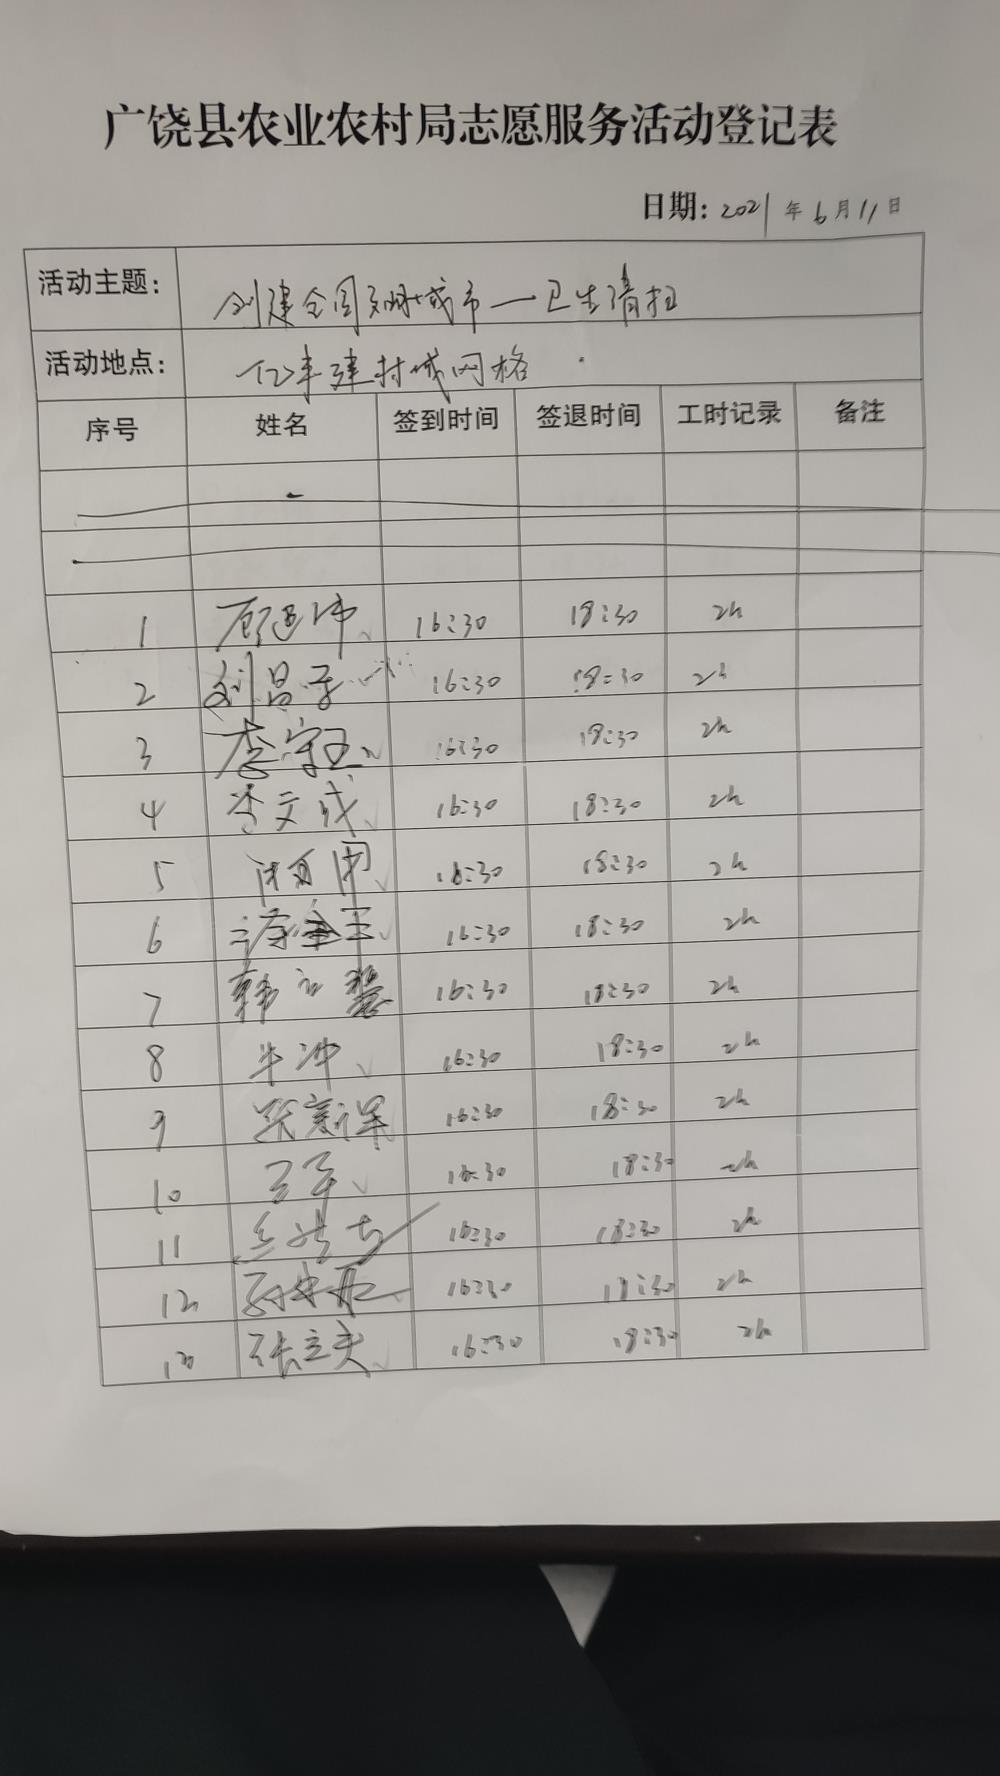 广饶县农业农村局志愿服务活动登记表
日期: 2021年6月11日
活动主题: 创建全国文明城市—卫生清扫
活动地点: 亿丰建材城网格
序号 姓名 签到时间 签退时间 工时记录 备注
1 16:30 18:30 2h
2 刘昌 16:30 18:30 2h
3 李守玉 16:30 18:30 2h
4 李文成 16:30 18:30 2h
5 16:30 18:30 2h
6 16:30 18:30 2h
7 韩 16:30 18:30 2h
8 牛冲 16:30 18:30 2h
9 张新军 16:30 18:30 2h
10 16:30 18:30 2h
11 16:30 18:30 2h
12 16:30 18:30 2h
13 张立夫 16:30 18:30 2h